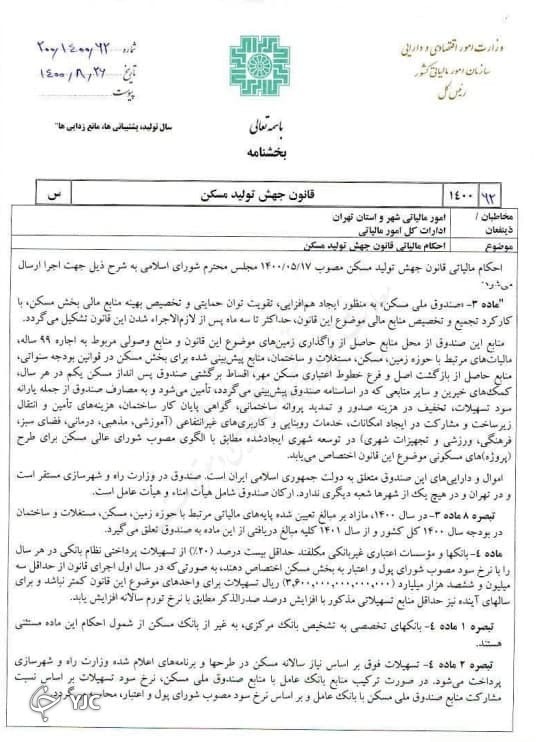 وزارت امور اقتصادی و دارایی
سازمان امور مالیاتی کشور
رئیس کل
شماره: ۲۰۰/۱۴۰۰/۶۲
تاریخ: ۱۴۰۰/۸/۲۶
پیوست
سال تولید، پشتیبانی ها، مانع زدایی ها"
باسمه تعالی
بخشنامه
۶۲ ۱۴۰۰ قانون جهش تولید مسکن س
مخاطبان / ذینفعان
امور مالیاتی شهر و استان تهران
ادارات کل امور مالیاتی
موضوع احکام مالیاتی قانون جهش تولید مسکن
احکام مالیاتی قانون جهش تولید مسکن مصوب ۱۴۰۰/۰۵/۱۷ مجلس محترم شورای اسلامی به شرح ذیل جهت اجرا ارسال
می‌شود:
"ماده ۳- «صندوق ملی مسکن» به منظور ایجاد هم‌افزایی، تقویت توان حمایتی و تخصیص بهینه منابع مالی بخش مسکن، با
کارکرد تجمیع و تخصیص منابع مالی موضوع این قانون، حداکثر تا سه ماه پس از لازم‌الاجراء شدن این قانون تشکیل می‌گردد.
منابع این صندوق از محل منابع حاصل از واگذاری زمین‌های موضوع این قانون و منابع وصولی مربوط به اجاره ۹۹ ساله،
مالیات‌های مرتبط با حوزه زمین، مسکن، مستغلات و ساختمان، منابع پیش‌بینی شده برای بخش مسکن در قوانین بودجه سنواتی،
منابع حاصل از بازگشت اصل و فرع خطوط اعتباری مسکن مهر، اقساط برگشتی صندوق پس انداز مسکن یکم در هر سال،
کمک‌های خیرین و سایر منابعی که در اساسنامه صندوق پیش‌بینی می‌گردد، تأمین می‌شود و به مصارف صندوق از جمله یارانه
سود تسهیلات، تخفیف در هزینه صدور و تمدید پروانه ساختمانی، گواهی پایان کار ساختمان، هزینه‌های تأمین و انتقال
زیرساخت و مشارکت در ایجاد امکانات، خدمات روبنایی و کاربری‌های غیرانتفاعی (آموزشی، مذهبی، درمانی، فضای سبز،
فرهنگی، ورزشی و تجهیزات شهری) در توسعه شهری ایجادشده مطابق با الگوی مصوب شورای عالی مسکن برای طرح
(پروژه)های مسکونی موضوع این قانون اختصاص می‌یابد.
اموال و دارایی‌های این صندوق متعلق به دولت جمهوری اسلامی ایران است. صندوق در وزارت راه و شهرسازی مستقر است
و در تهران و در هیچ یک از شهرها شعبه دیگری ندارد. ارکان صندوق شامل هیأت امناء و هیأت عامل است.
تبصره ۸ ماده ۳- در سال ۱۴۰۰، مازاد بر مبالغ تعیین شده پایه‌های مالیاتی مرتبط با حوزه زمین، مسکن، مستغلات و ساختمان
در بودجه سال ۱۴۰۰ کل کشور و از سال ۱۴۰۱ کلیه مبالغ دریافتی از این ماده به صندوق تعلق می‌گیرد.
ماده ۴- بانکها و مؤسسات اعتباری غیربانکی مکلفند حداقل بیست درصد (۲۰٪) از تسهیلات پرداختی نظام بانکی در هر سال
را با نرخ سود مصوب شورای پول و اعتبار به بخش مسکن اختصاص دهند، به صورتی‌که در سال اول اجرای قانون از حداقل سه
میلیون و ششصد هزار میلیارد (۳,۶۰۰,۰۰۰,۰۰۰,۰۰۰,۰۰۰) ریال تسهیلات برای واحدهای موضوع این قانون کمتر نباشد و برای
سالهای آینده نیز حداقل منابع تسهیلاتی مذکور با افزایش درصد صدرالذکر مطابق با نرخ تورم سالانه افزایش یابد.
تبصره ۱ ماده ۴- بانکهای تخصصی به تشخیص بانک مرکزی، به غیر از بانک مسکن از شمول احکام این ماده مستثنی
هستند.
تبصره ۲ ماده ۴- تسهیلات فوق بر اساس نیاز سالانه مسکن در طرحها و برنامه‌های اعلام شده وزارت راه و شهرسازی
پرداخت می‌شود. در صورت ترکیب منابع بانک عامل با منابع صندوق ملی مسکن، نرخ سود تسهیلات بر اساس نسبت
مشارکت منابع صندوق ملی مسکن با بانک عامل و بر اساس نرخ سود مصوب شورای پول و اعتبار، محاسبه می‌گردد.
YJC